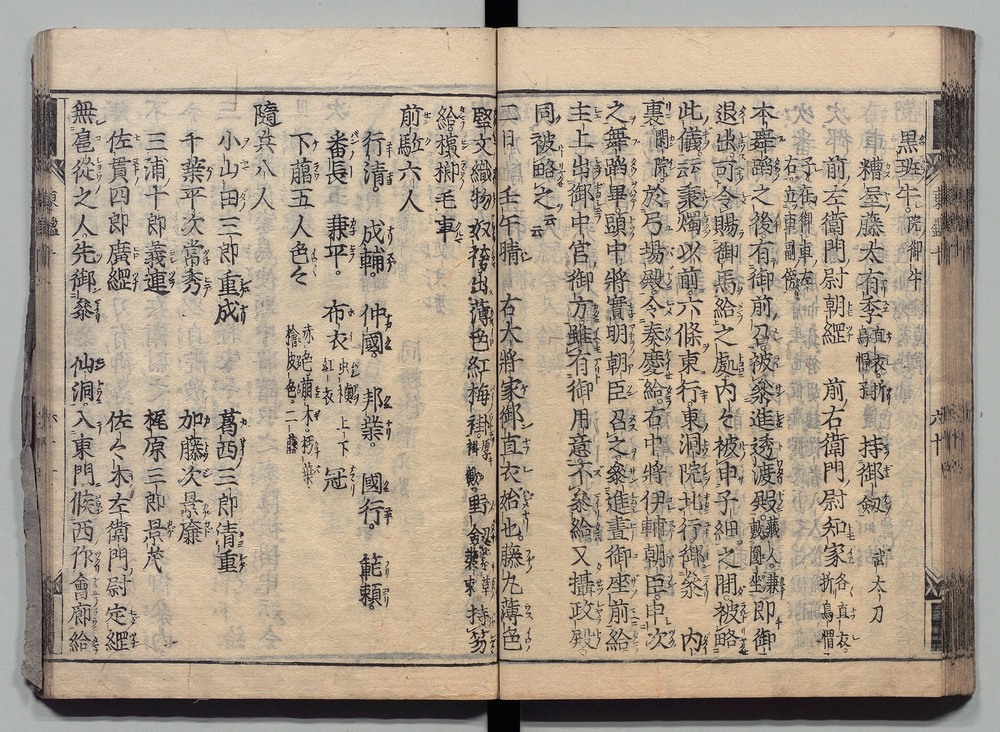 黒斑牛。院御牛
糟屋藤太有季 直衣。折烏帽子 持御劔 武太刀
予在御車左右。立車副傍
前左衛門尉朝經 前右衛門尉知家 各直衣。折烏帽
本舞蹈之後有御前召被參進透渡殿。藏人。兼敷圓坐即御
退出可令賜御馬給之處内々被申子細之間被略
此儀云云秉燭以前六條東行。東洞院北行御參 内
裏 閑院 於弓場殿令奏慶給。右中將伊輔朝臣申次
之舞蹈畢頭中將實明朝臣召之參進晝御座前給
主上出御中宮御方雖有御用意不參給又攝政殿
同被略之云云
二日 壬午晴 右大將家御直衣始也。藤丸薄色
堅文織物奴袴出薄色紅梅褂 野 持笏
給。檳榔毛車
前駈六人
行清。 成輔。 仲國。 邦業。 國行。 範頼。
番長 兼平。 布衣 虫襖上下紅衣 冠
下﨟五人色々 赤色萠木。朽葉。檜皮色。二藍
隨兵八人
小山田三郎重成 葛西三郎清重
千葉平次常秀 加藤次景廉
三浦十郎義連 梶原三郎景茂
佐貫四郎廣經 佐々木左衛門尉定經
無扈從之人先御參 仙洞。入東門候西作會廊給
東鑑十
六十